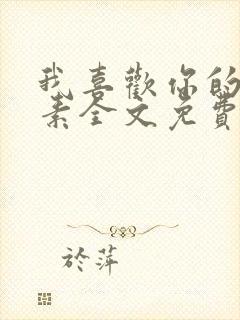 我喜歡你的
素全文免費
於萍